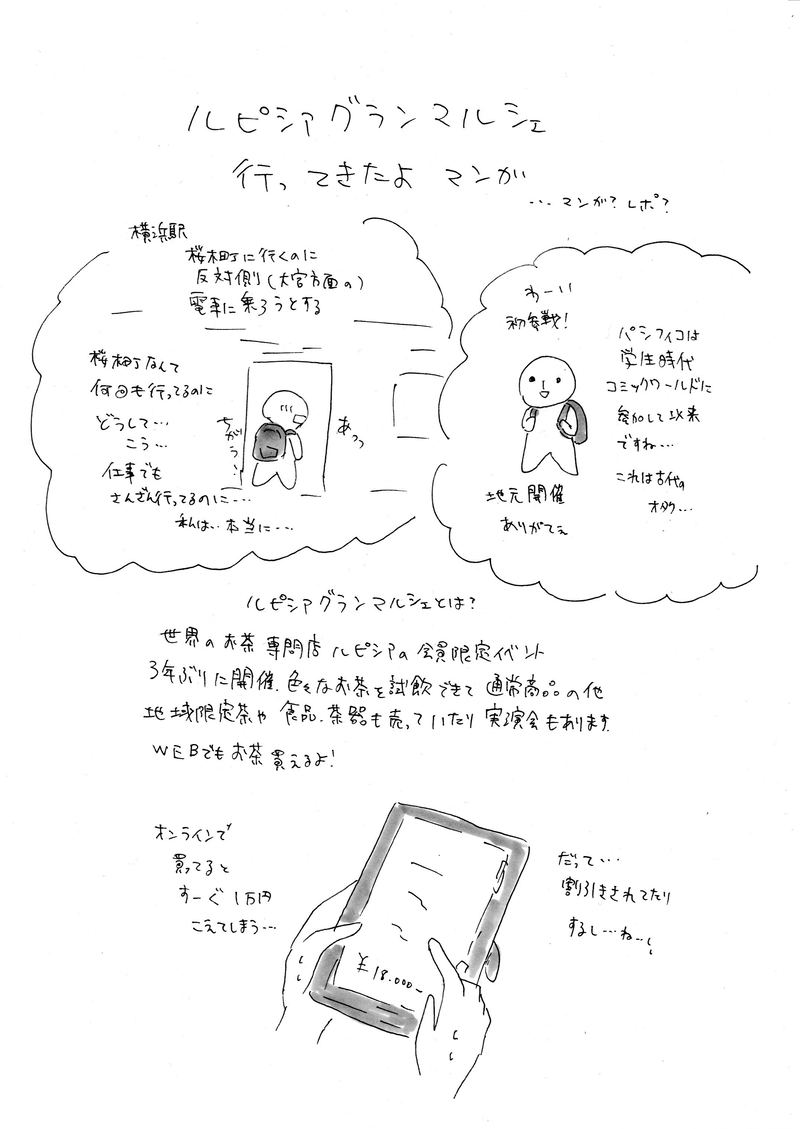 ルピシアグランマルシェ
行ってきたよ マンガ
…マンガ？レポ？
横浜駅
桜木町に行くのに
反対側（大宮方面の）
電車に乗ろうとする
桜木町なんて
何回も行ってるのに
どうして…
こう…
仕事でも
さんざん行ってるのに…
私は…本当に…
ちがう！
あっっ
わーい
初参戦！
パシフィコは
学生時代
コミックワールドに
参加して以来
ですね…
これは古代の
オタク…
地元開催
ありがてぇ
ルピシアグランマルシェとは？
世界のお茶専門店 ルピシアの会員限定イベント
3年ぶりに開催、色々なお茶を試飲できて 通常商品の他
地域限定茶や 食品、茶器も売っていたり 実演会もあります
WEBでもお茶買えるよ！
オンラインで
買ってると
すーぐ1万円
こえてしまう…
だって…
割引きされてたり
するし…ね…
¥18.000-